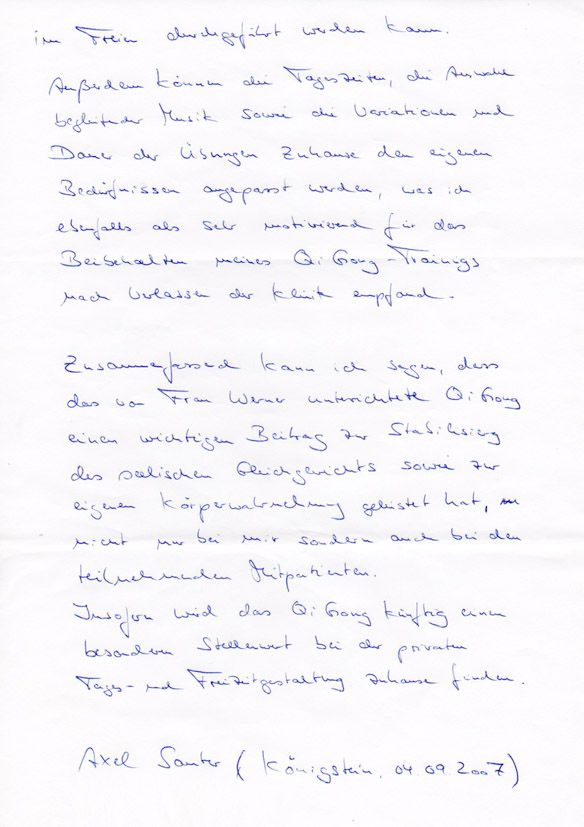 im Freien durchgeführt werden kann.
Außerdem können die Tageszeiten, die Auswahl
begleitender Musik sowie die Variationen und
Dauer der Übungen Zuhause den eigenen
Bedürfnissen angepasst werden, was ich
ebenfalls als sehr motivierend für das
Beibehalten meines Qi Gong-Trainings
nach Verlassen der Klinik empfand.
Zusammenfassend kann ich sagen, dass
das von Frau Werner unterrichtete Qi Gong
einen wichtigen Beitrag zur Stabilisierung
des seelischen Gleichgewichts sowie zur
eigenen Körperwahrnehmung geleistet hat,
nicht nur bei mir sondern auch bei den
teilnehmenden Mitpatienten.
Insofern wird das Qi Gong künftig einen
besonderen Stellenwert bei der privaten
Tages- und Freizeitgestaltung zuhause finden.
Axel Sauter (Königstein, 04.09.2007)